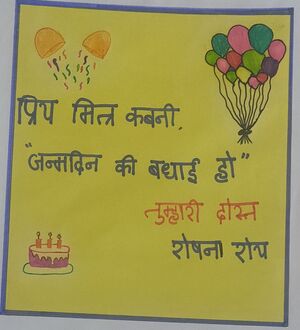 प्रिय मित्र कबनी,
"जन्मदिन की बधाई हो"
तुम्हारी दोस्त
रोषना रोय